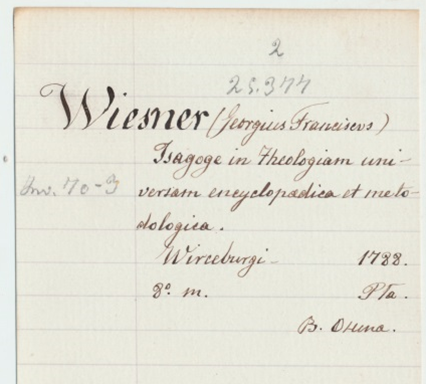 2
25.377
Wiesner (Georgius Franciscus)
Isagoge in Theologiam uni-
Inv. 70-3 versam encyclopædica et meto-
dologica.
Wirceburgi 1788.
8º. m. Pta.
B. Osuna.